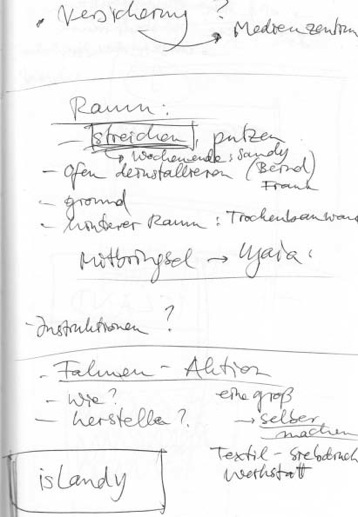 • Versicherung ?
→ Medienzentrum
Raum:
– streichen, putzen
↳ Wochenende: Sandy
– Ofen deinstallieren (Bernd)
Frank
– ground
– hinterer Raum: Trockenbauwand
Mitbringsel → Maja:
– Instruktionen ?
– Fahnen – Aktion
– wie? eine groß
– herstelle? → selber
machen
Textil – Siebdruck
Werkstatt
isLandy